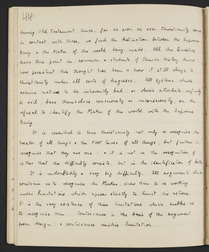 44
during Old Testament times, for as soon as ever Christianity came
in contact with these, we find the distinction between the Supreme
Being & the Maker of the world being made. All the heresies
have this point in common & students of Church History know
how persistent this thought has been & how it still clings to
Christianity under all sorts of disguises. All systems which
assume matter to be inherently bad, or which attribute infinity
to evil, base themselves consciously or unconsciously, on the
refusal to identify the Maker of the world with the Supreme
Being.
It is essential to true Christianity not only to recognise the
Creator of all things & the First Cause of all things, but further to
recognise that they are one: & it is not in the recognition of
either that the difficulty consists but in the identification of both.
It is undoubtedly a very big difficulty. All arguments which
constrain us to recognise the Maker, show Him to us working
under limitations which appear strictly to limit His actions.
It is the very existence of these limitations which enables us
to recognise Him. Contrivance is the basis of the argument
from design: & contrivance implies limitation.